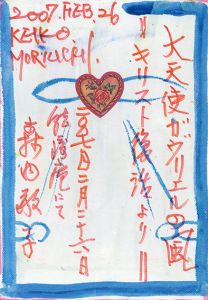 2007. FEB. 26
KEIKO
MORIUCHI.
大天使ガヴリエルの画
＝キリスト像法より＝
二〇〇七年二月二十六日
にて
森内敬子